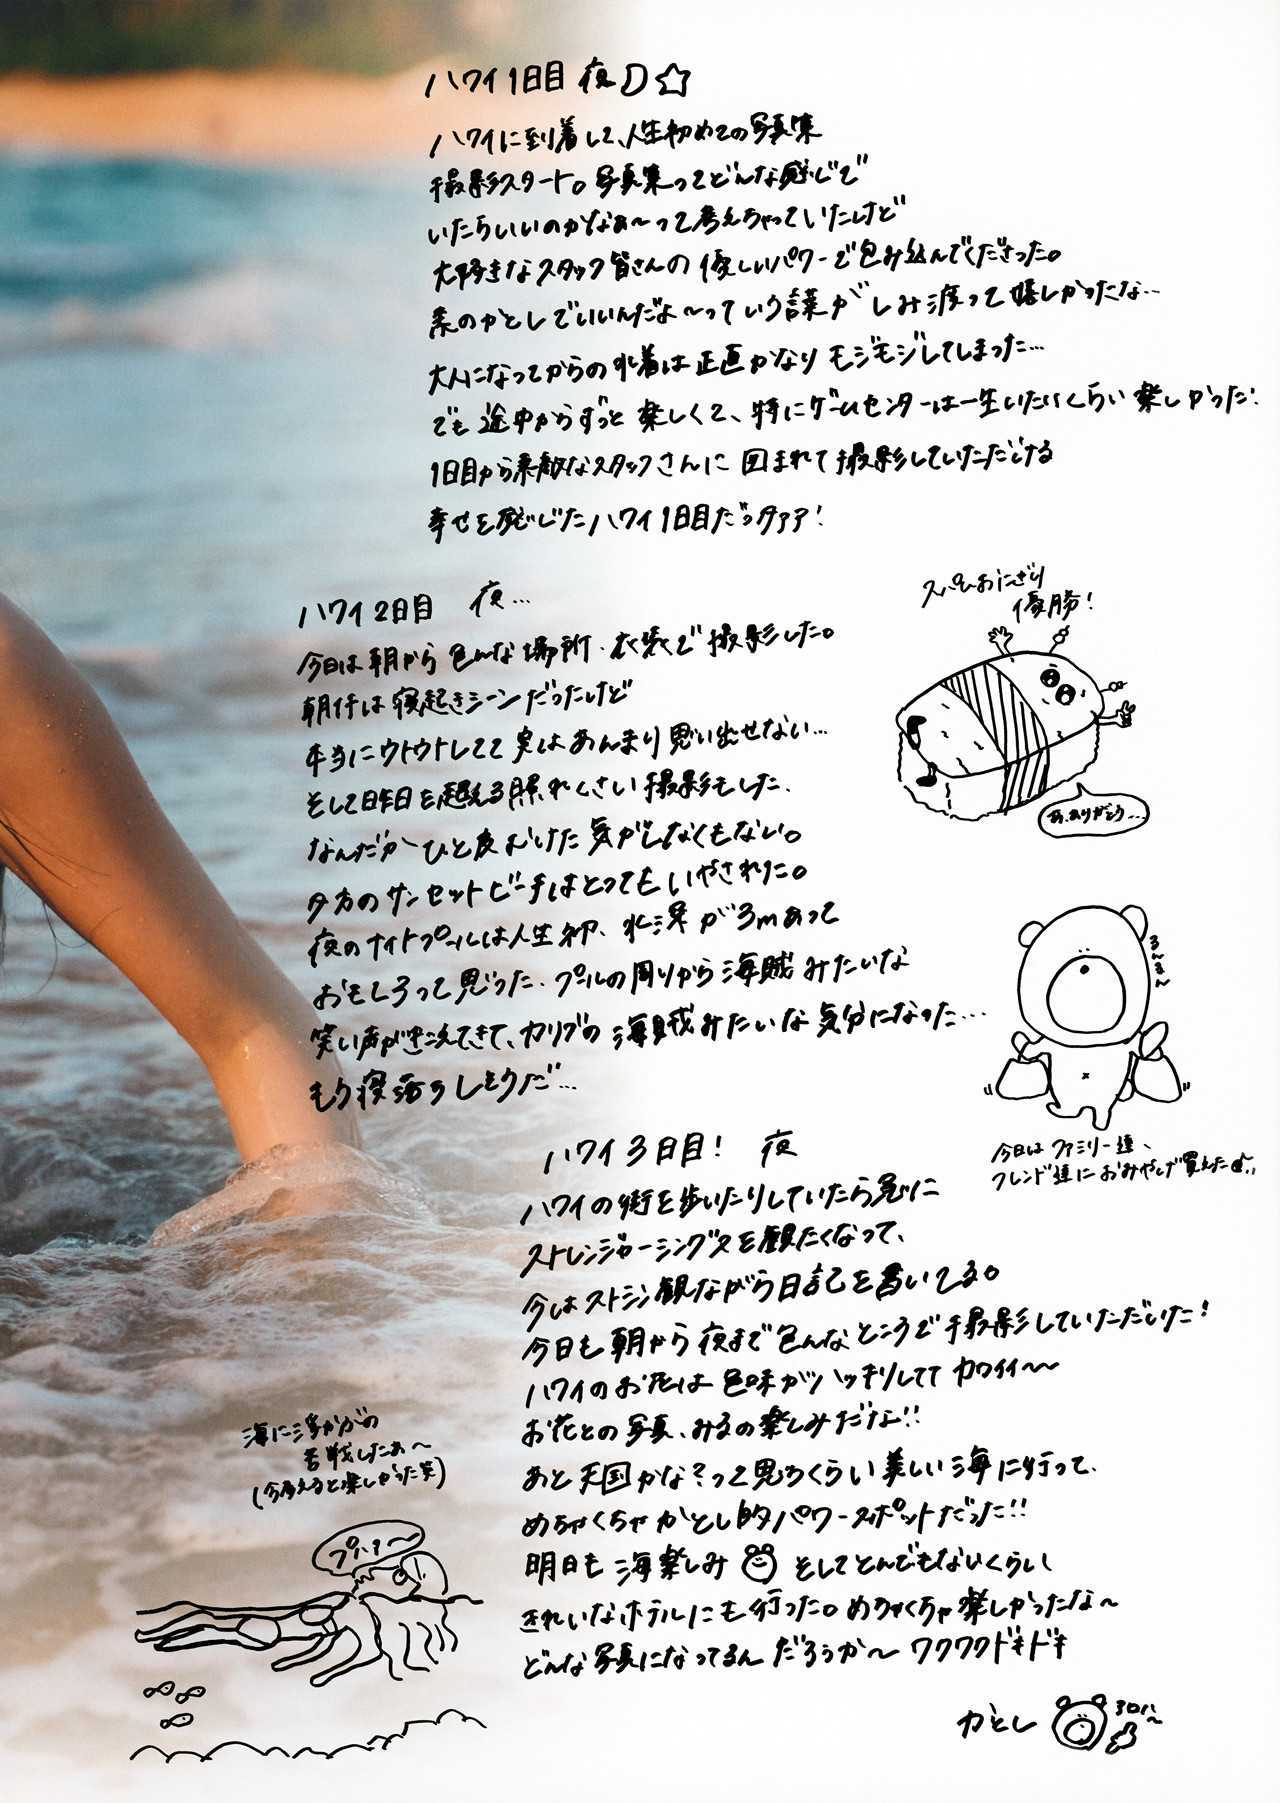 ハワイ1日目 夜
ハワイに到着して、人生初めての写真集
撮影スタート。写真集ってどんな感じで
いたらいいのかなぁ〜って考えちゃっていたけど
大好きなスタッフ皆さんの優しいパワーで包み込んでくださった。
素のかとしでいいんだよ〜っていう言葉がしみ渡って嬉しかったな…
大人になってからの水着は正直かなりモジモジしてしまった…
でも途中からずっと楽しくて、特にゲームセンターは一生いたいくらい楽しかった!
1日目から素敵なスタッフさんに囲まれて撮影していただける
幸せを感じたハワイ1日目だっタァァ!
スパムおにぎり
優勝!
あ、ありがとう…
ハワイ2日目 夜…
今日は朝から色んな場所、衣装で撮影した。
朝イチは寝起きシーンだったけど
本当にウトウトしてて実はあんまり思い出せない…
そして昨日を超える照れくさい撮影もした、
なんだかひと皮むけた気がしなくもない。
夕方のサンセットビーチはとってもいやされた。
夜のナイトプールは人生初、水深が3mあって
おもしろって思った、プールの周りから海賊みたいな
笑い声がきこえてきて、カリブの海賊みたいな気分になった…
もう寝落ちしそうだ…
るんるん
今日はファミリー達、
フレンド達におみやげ買えた
ハワイ3日目! 夜
ハワイの街を歩いたりしていたら急に
ストレンジャーシングスを観たくなって、
今はストシン観ながら日記を書いてる。
今日も朝から夜まで色んなところで撮影していただいた!
ハワイのお花は色味がハッキリしててカワイイ〜〜
お花との写真、みるの楽しみだな!!
あと天国かな?って思うくらい美しい海に行って、
めちゃくちゃかとし的パワースポットだった!!
明日も海楽しみ そしてとんでもないくらい
きれいなホテルにも行った。めちゃくちゃ楽しかったな〜
どんな写真になってるんだろうか〜ワクワクドキドキ
海に浮かぶの
苦戦したぁ〜
(今考えると楽しかった笑)
プハァ〜
かとし